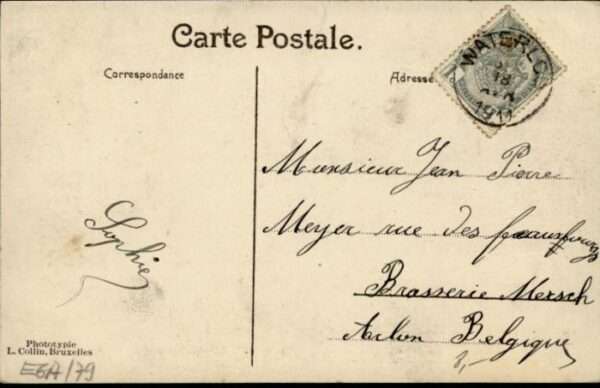 Carte Postale.
Correspondance
Adresse
WATERLO
18
1911
Monsieur Jean Pierre
Meyer rue des faubourgs
Brasserie Mersch
Arlon Belgique
Sophie
Phototypie
L. Collin, Bruxelles
E6A/79